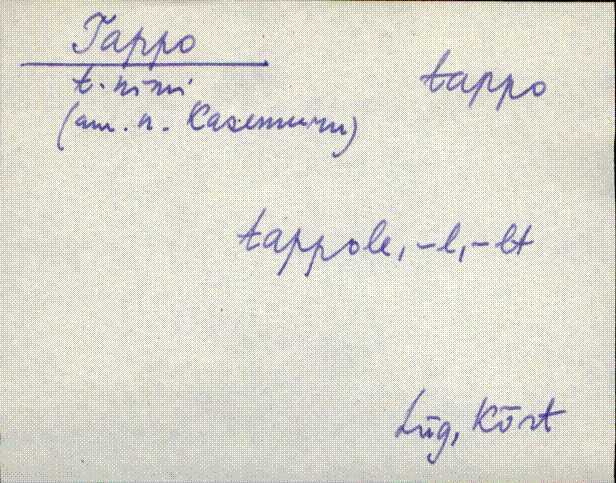 Tappo
tappo
t. nimi
(am. n. Kasemuru)
tappole, -l, -lt
Lüg, Kõrt